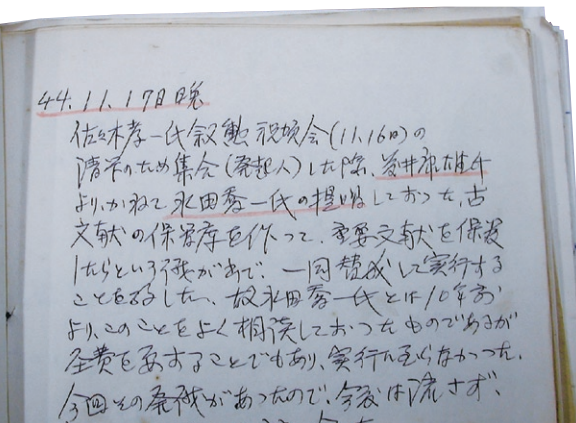 44.11.17日晩
佐々木孝一氏叙勲祝賀会(11.16日)の
清算のため集合(発起人)した際、
より、かねて永田秀一氏の提唱しておった、古
文献の保管庫を作って、重要文献を保護
したらという儀が出て、一同賛成して実行する
ことを約した、故永田秀一氏とは10年前
より、このことをよく相談しておったものであるが
全費を要することでもあり、実行に至らなかった、
今回その発議があったので、今度は流さず、